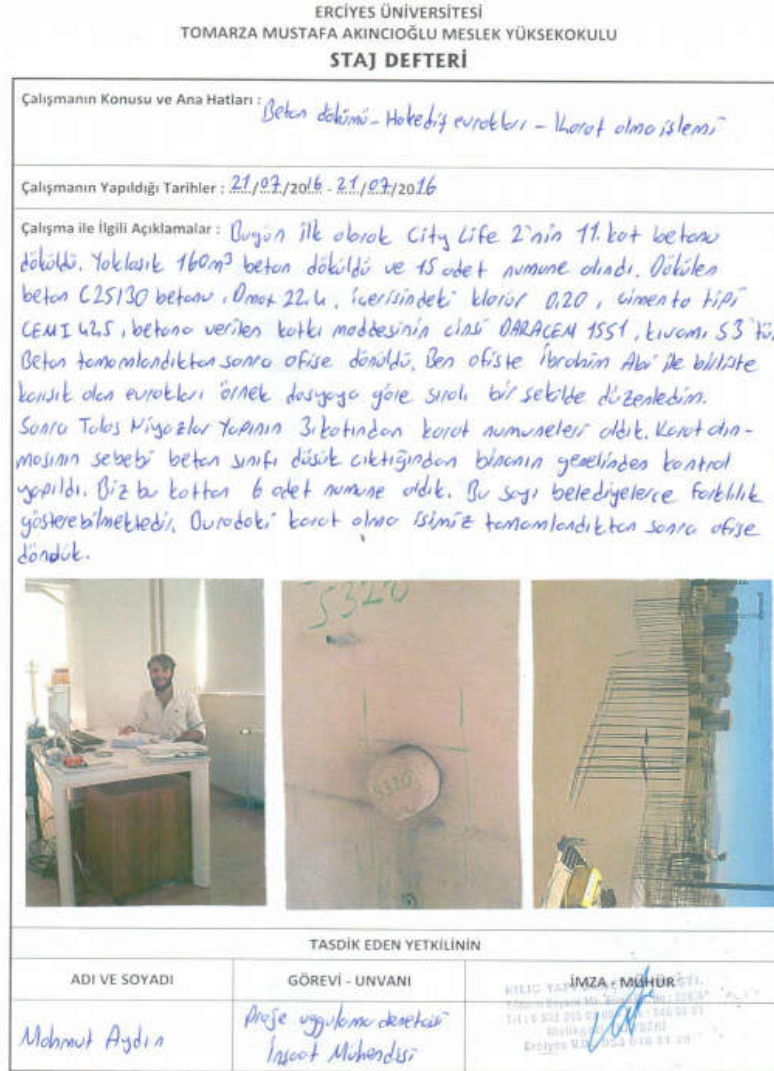 ERCİYES ÜNİVERSİTESİ
TOMARZA MUSTAFA AKINCIOĞLU MESLEK YÜKSEKOKULU
STAJ DEFTERİ
Çalışmanın Konusu ve Ana Hatları : Beton dökümü - Hakediş evrakları - Karot alma işlemi
Çalışmanın Yapıldığı Tarihler : 21/07/2016 - 21/07/2016
Çalışma ile İlgili Açıklamalar : Bugün ilk olarak City Life 2'nin 11. kat betonu
döküldü. Yaklaşık 160m³ beton döküldü ve 15 adet numune alındı. Dökülen
beton C25/30 betonu, Dmax 22.4, içerisindeki klorür 0.20, çimento tipi
CEM I 42.5, betona verilen katkı maddesinin cinsi DARACEM 1551, kıvamı S3'tü.
Beton tamamlandıktan sonra ofise dönüldü. Ben ofiste İbrahim Abi ile birlikte
karışık olan evrakları örnek dosyaya göre sıralı bir şekilde düzenledim.
Sonra Talas Niyazlar Yapının 3. katından karot numuneleri aldık. Karot alın-
masının sebebi beton sınıfı düşük çıktığından binanın genelinden kontrol
yapıldı. Biz bu kattan 6 adet numune aldık. Bu sayı belediyelerce farklılık
gösterebilmektedir. Buradaki karot alma işimiz tamamlandıktan sonra ofise
döndük.
S320
S320
TASDİK EDEN YETKİLİNİN
ADI VE SOYADI
GÖREVİ - UNVANI
İMZA - MÜHÜR
Mahmut Aydın
Proje uygulama denetçisi
İnşaat Mühendisi